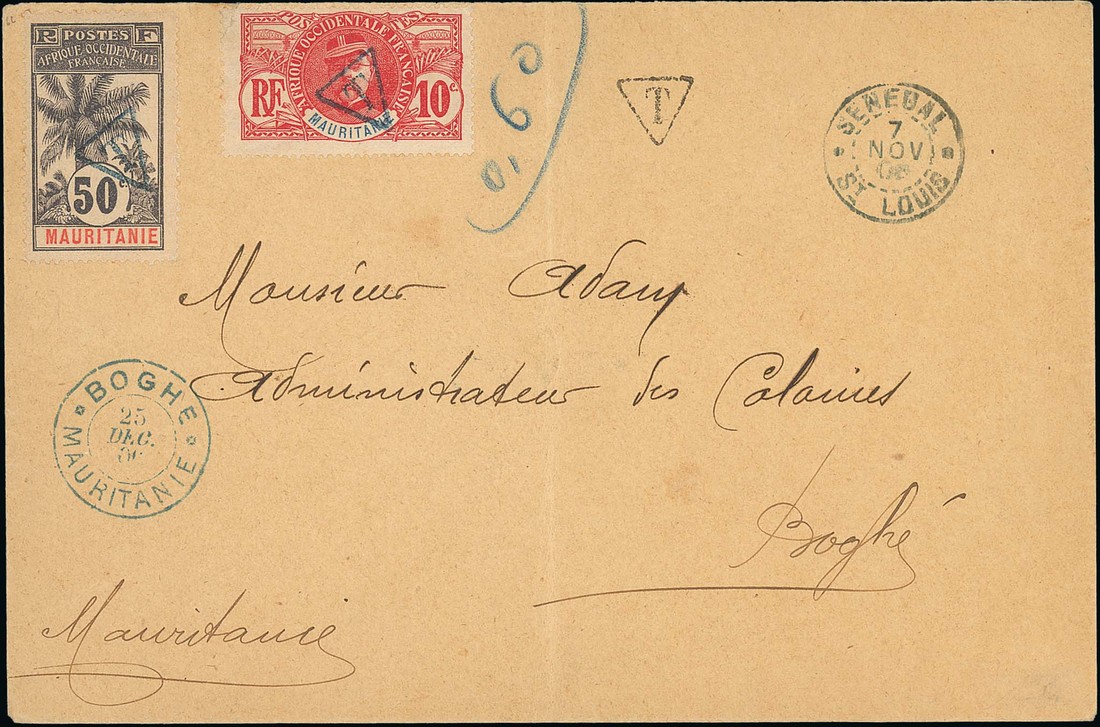 R POSTES F
AFRIQUE OCCIDENTALE
FRANÇAISE
50 c.
MAURITANIE
POSTES
AFRIQUE OCCIDENTALE FRANÇAISE
RF
10 c.
MAURITANIE
T
0,60
T
SENEGAL
7
NOV
ST LOUIS
Monsieur Adam
Administrateur des Colonies
BOGHE
25
DEC.
MAURITANIE
Boghé
Mauritanie